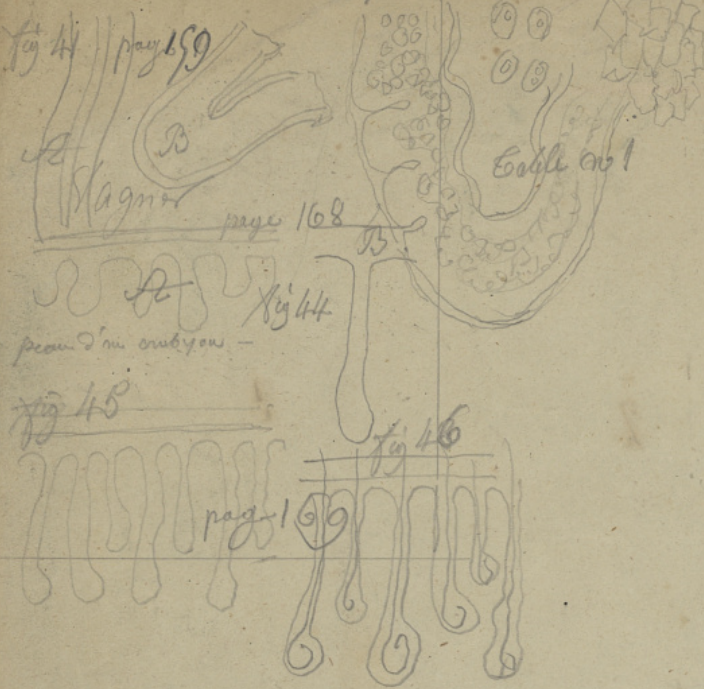 fig 41 pag 159
A
B
Wagner
Table no 1
page 168
B
A
fig 44
peau d'un embryon —
fig 45
fig 46
pag - 169